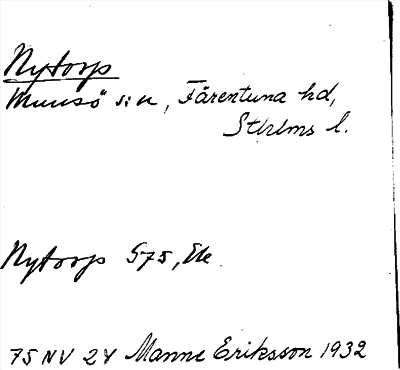 Nytorp
Munsö sn, Färentuna hd,
Sthlms l.
Nytorp S75, Ek
75 NV 24 Manne Eriksson 1932